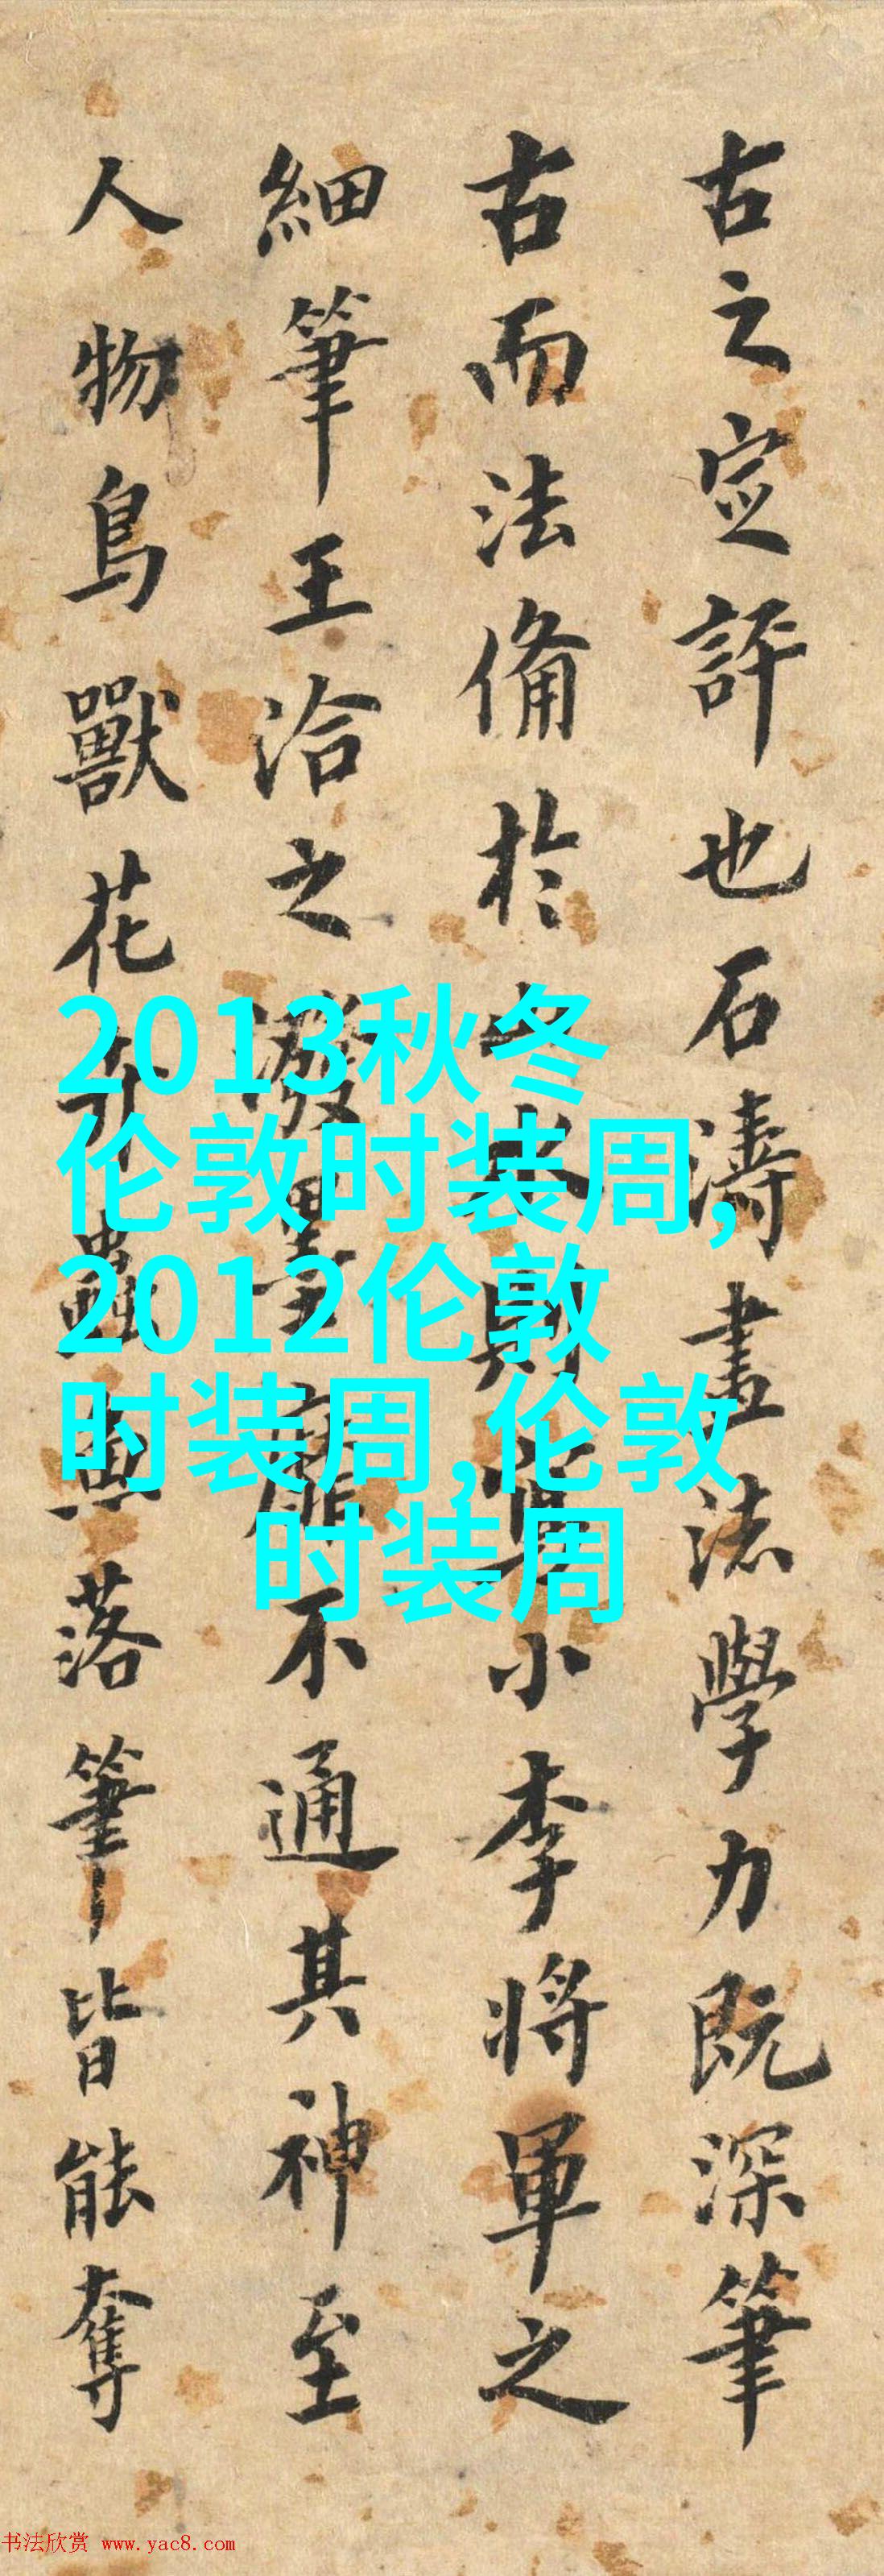 古之定評也石濤畫法學力既深筆
古而法備於山水則小李將軍之
細筆王洽之潑墨靡不通其神至
人物鳥獸花卉蟲魚落筆皆能奪
2013秋冬
伦敦时装周,
2012伦敦
时装周,伦敦
时装周
书法欣赏 www.yac8.com